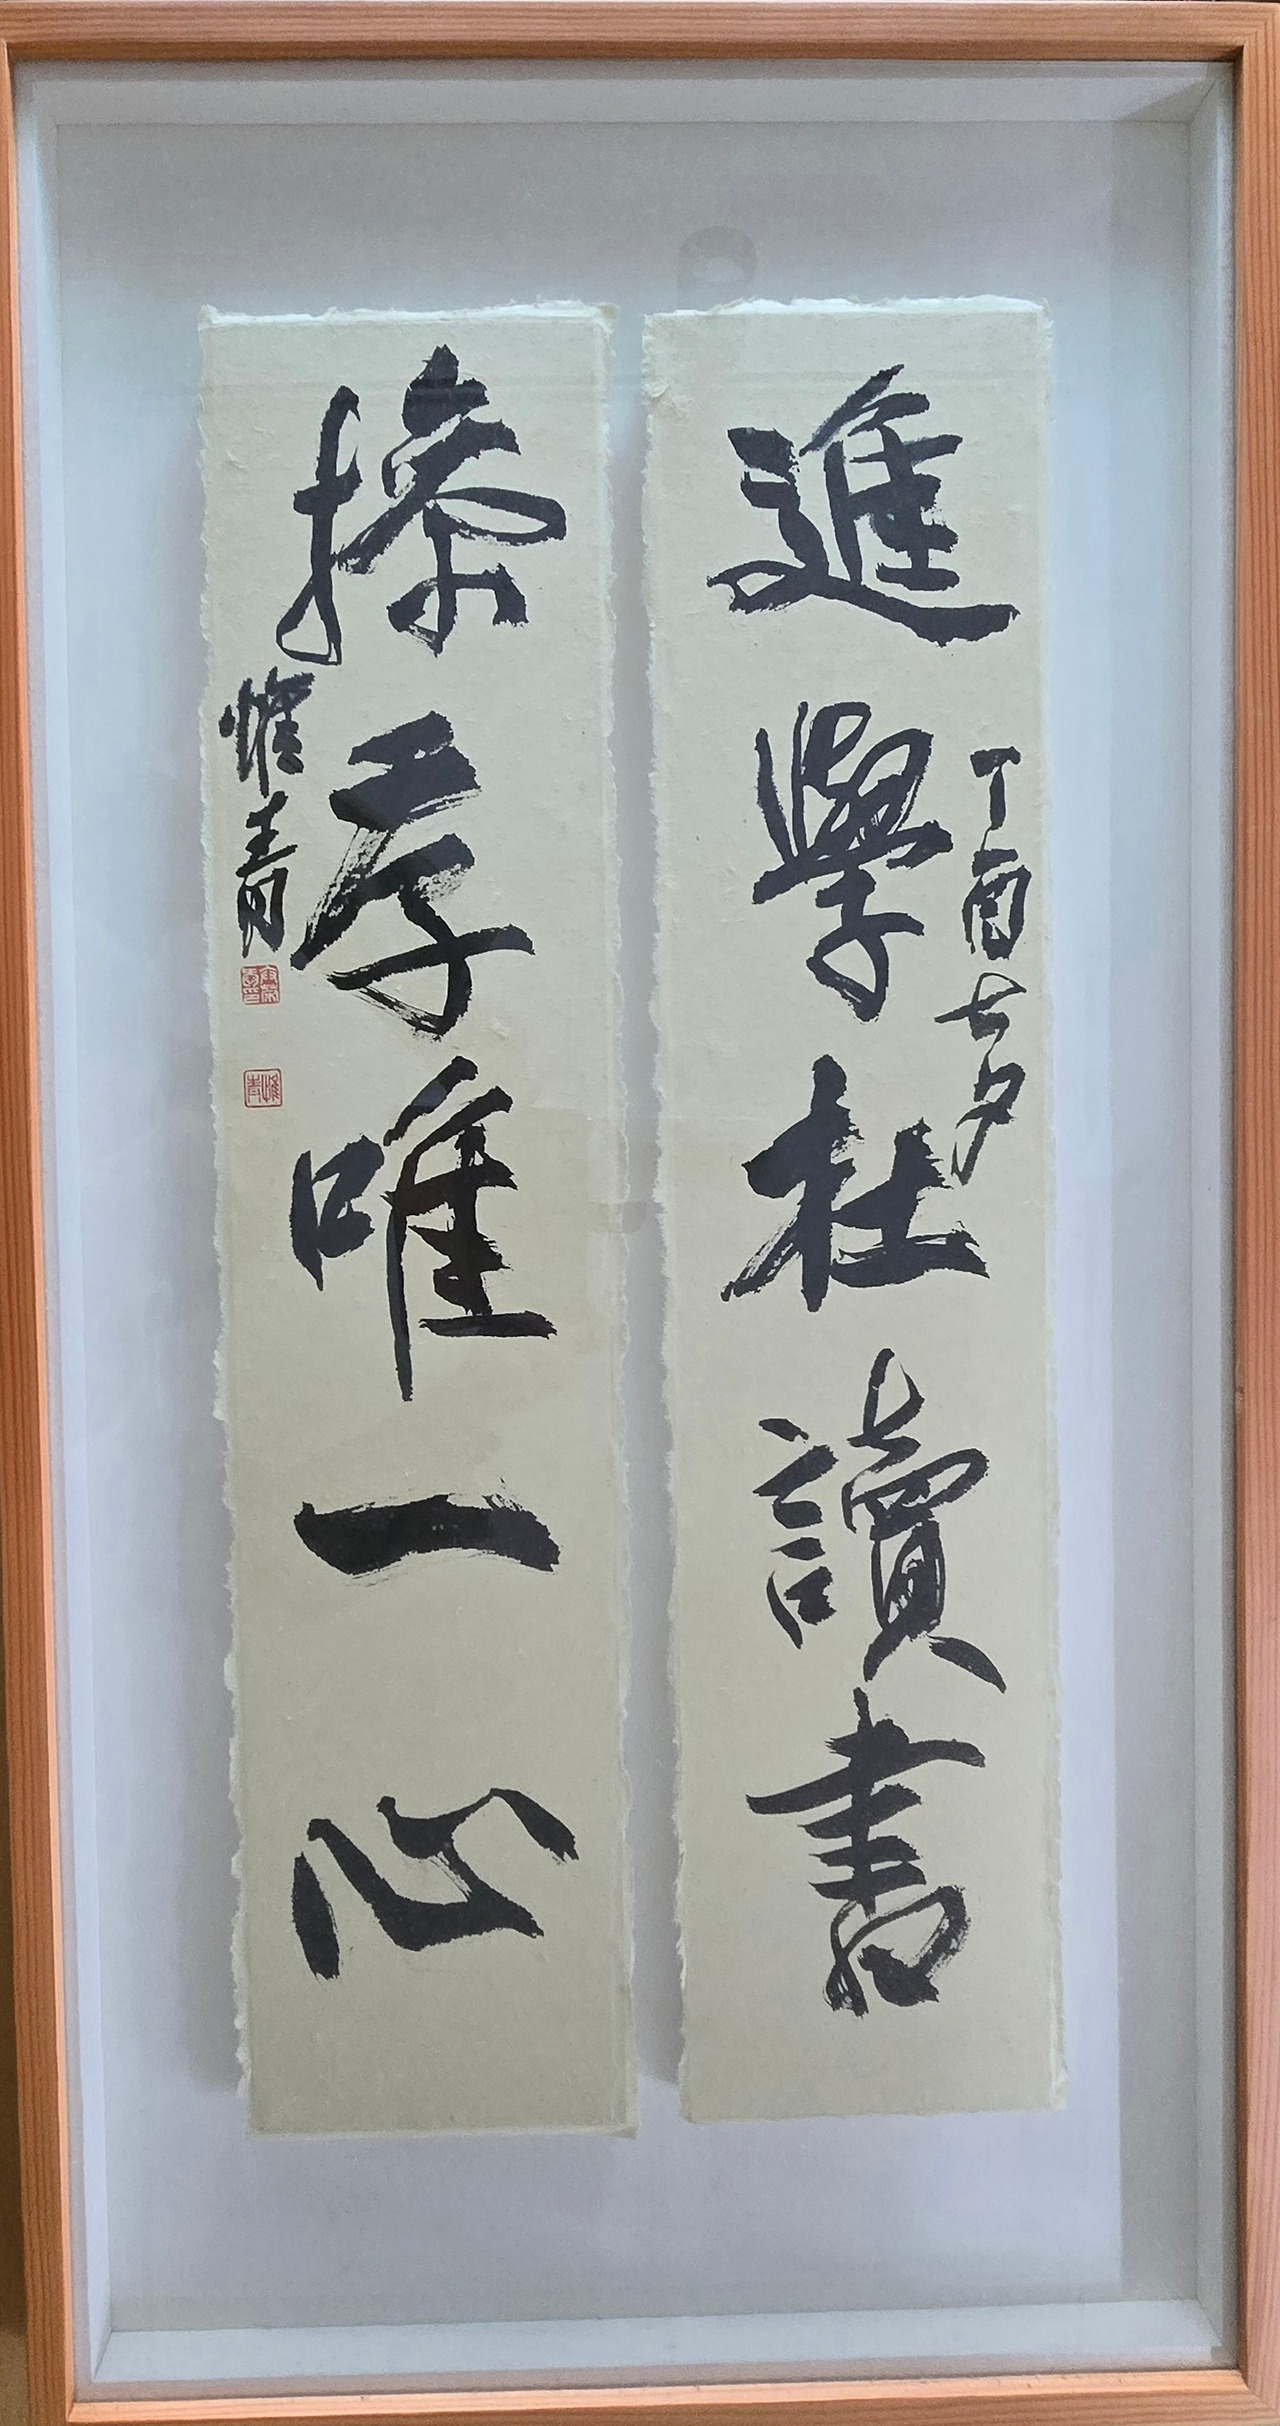 進學在讀書
丁酉七夕
操存唯一心
惟青